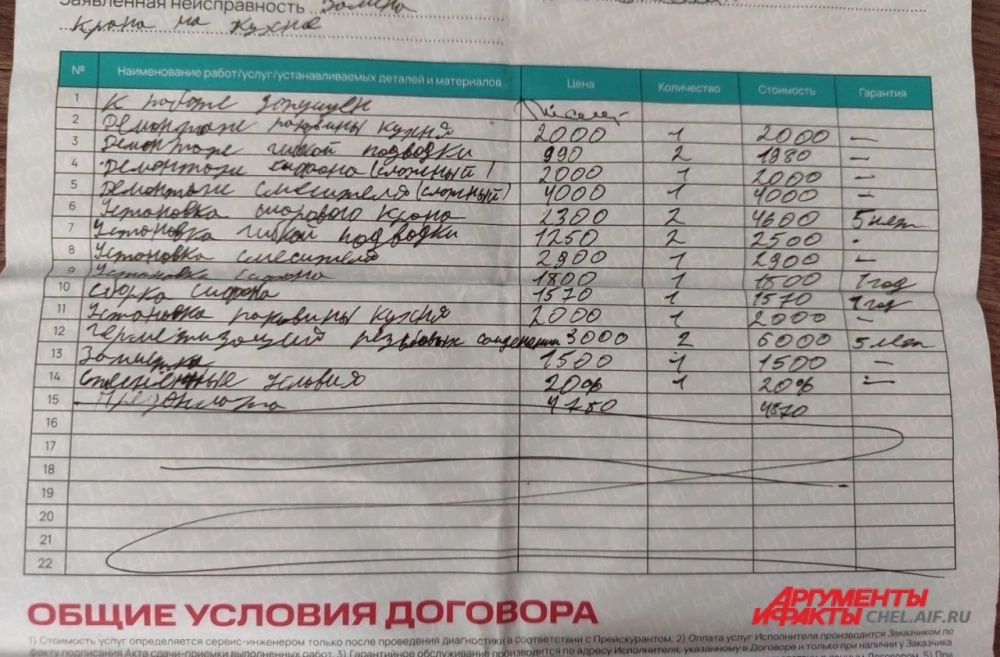 Заявленная неисправность Замена
крана на кухне
№ Наименование работ/услуг/устанавливаемых деталей и материалов Цена Количество Стоимость Гарантия
1 К работе допущен
2 Демонтаж раковины кухня 2000 1 2000 —
3 Демонтаж гибкой подводки 990 2 1980 —
4 Демонтаж сифона (сложный) 2000 1 2000 —
5 Демонтаж смесителя (сложный) 4000 1 4000 —
6 Установка шарового крана 2300 2 4600 5 лет
7 Установка гибкой подводки 1250 2 2500
8 Установка смесителя 2900 1 2900 —
9 Установка сифона 1800 1 1800 1 год
10 Сборка сифона 1570 1 1570 1 год
11 Установка раковины кухня 2000 1 2000 —
12 Герметизация резьбовых 3000 2 6000 5 лет
13 Зачистка 1500 1 1500 —
14 Стеснённые условия 20% 1 20% —
15 4780
16
17
18
19
20
21
22
ОБЩИЕ УСЛОВИЯ ДОГОВОРА
АРГУМЕНТЫ
И ФАКТЫ CHEL.AIF.RU
1) Стоимость услуг определяется сервис-инженером только после проведения диагностики в соответствии с Прейскурантом. 2) Оплата услуг Исполнителя производится Заказчиком по
факту подписания Акта сдачи-приемки выполненных работ. 3) Гарантийное обслуживание производится по адресу Исполнителя, указанному в Договоре и только при наличии у Заказчика